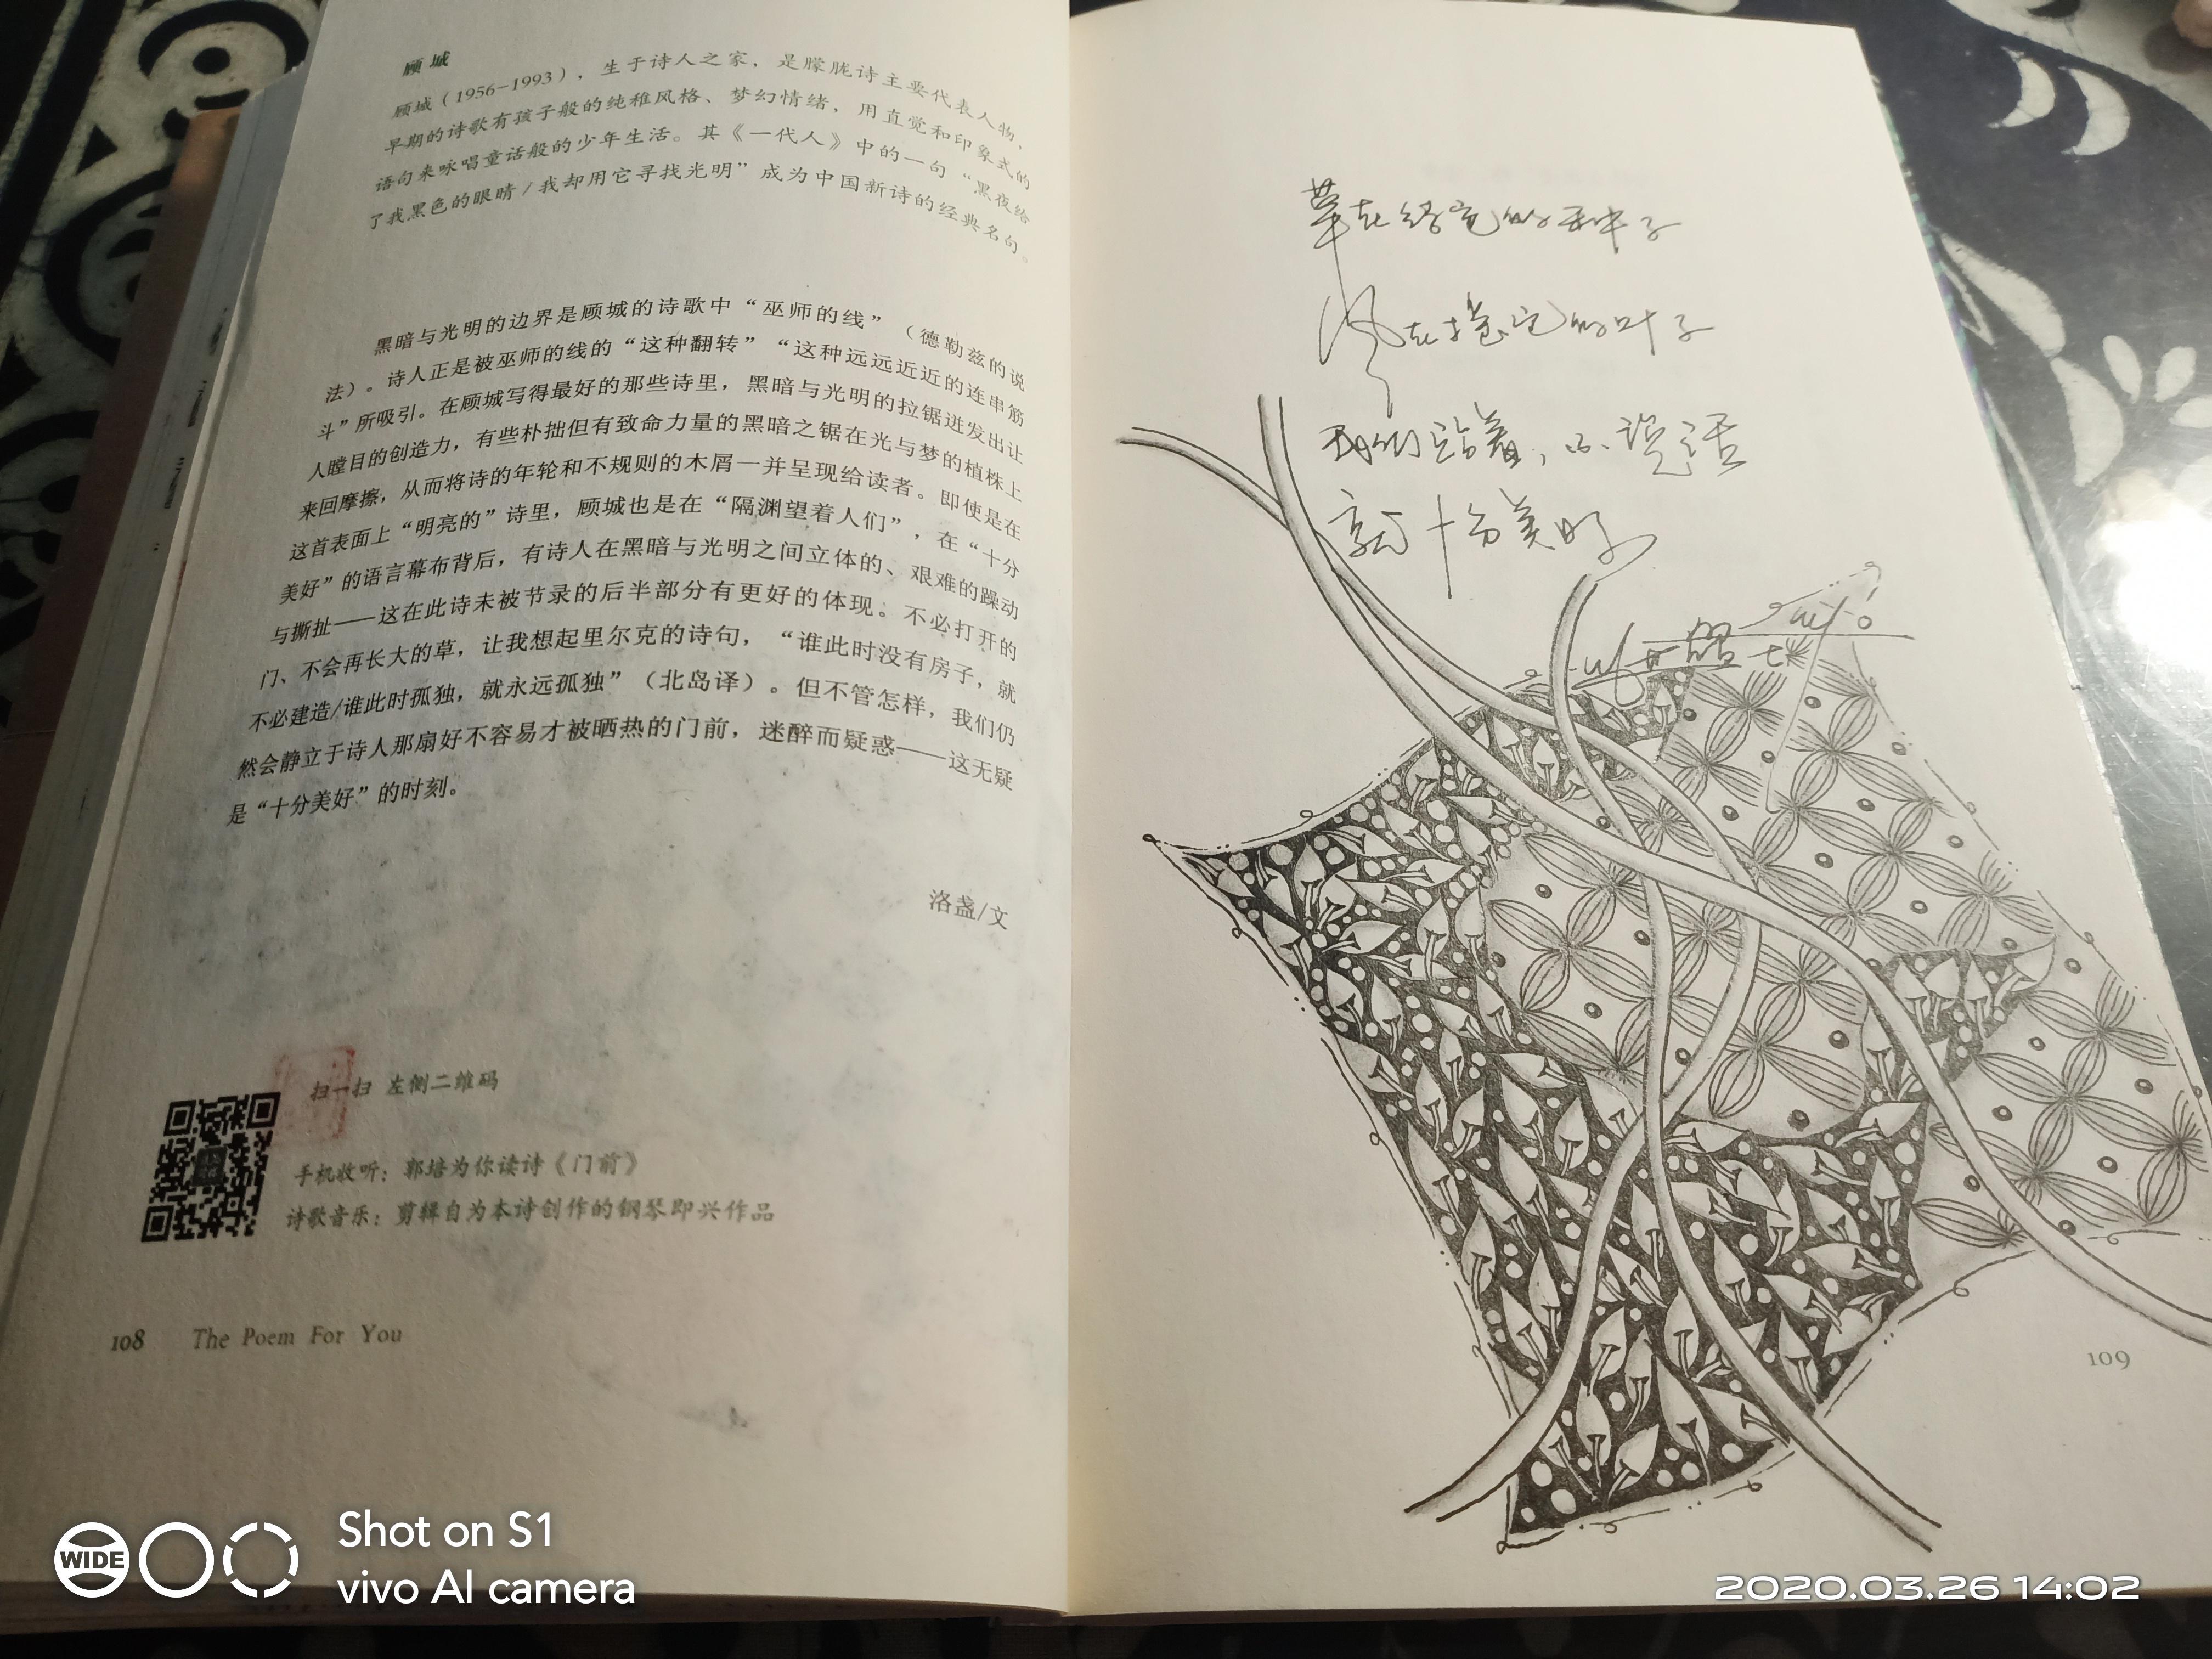 顾城
顾城（1956-1993），生于诗人之家，是朦胧诗主要代表人物，
早期的诗歌有孩子般的纯稚风格、梦幻情绪，用直觉和印象式的
语句来咏唱童话般的少年生活。其《一代人》中的一句“黑夜给
了我黑色的眼睛/我却用它寻找光明”成为中国新诗的经典名句。
黑暗与光明的边界是顾城的诗歌中“巫师的线”（德勒兹的说
法）。诗人正是被巫师的线的“这种翻转”“这种远远近近的连串筋
斗”所吸引。在顾城写得最好的那些诗里，黑暗与光明的拉锯迸发出让
人瞠目的创造力，有些朴拙但有致命力量的黑暗之锯在光与梦的植株上
来回摩擦，从而将诗的年轮和不规则的木屑一并呈现给读者。即使是在
这首表面上“明亮的”诗里，顾城也是在“隔渊望着人们”，在“十分
美好”的语言幕布背后，有诗人在黑暗与光明之间立体的、艰难的躁动
与撕扯——这在此诗未被节录的后半部分有更好的体现。不必打开的
门、不会再长大的草，让我想起里尔克的诗句，“谁此时没有房子，就
不必建造/谁此时孤独，就永远孤独”（北岛译）。但不管怎样，我们仍
然会静立于诗人那扇好不容易才被晒热的门前，迷醉而疑惑——这无疑
是“十分美好”的时刻。
洛盏/文
扫一扫 左侧二维码
手机收听：郭培为你读诗《门前》
诗歌音乐：剪辑自为本诗创作的钢琴即兴作品
108 The Poem For You
草在结它的种子
风在摇它的叶子
我们站着，不说话
就十分美好
109
WIDE
Shot on S1
vivo AI camera
2020.03.26 14:02